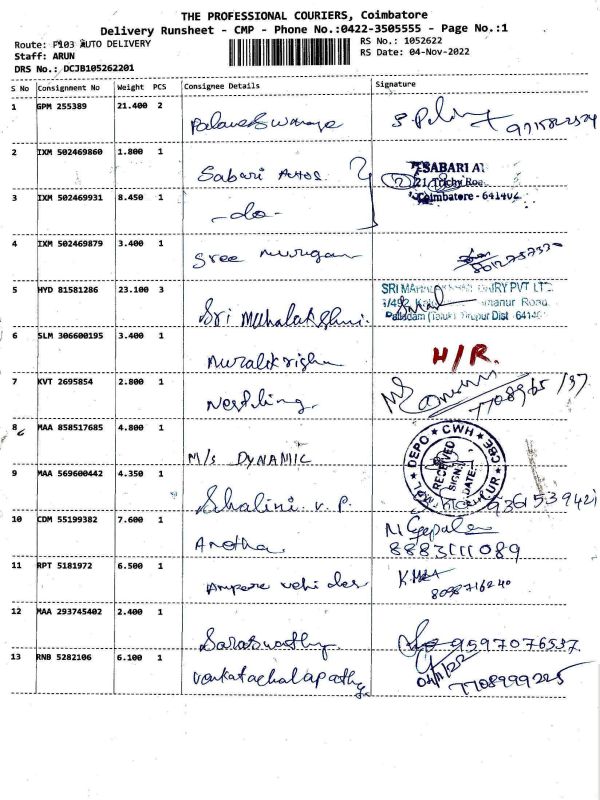 THE PROFESSIONAL COURIERS, Coimbatore
Delivery Runsheet - CMP - Phone No.:0422-3505555 - Page No.:1
Route: F103 AUTO DELIVERY
RS No.: 1052622
Staff: ARUN
RS Date: 04-Nov-2022
DRS No.: DCJB105262201
S No Consignment No Weight PCS Consignee Details Signature
1 GPM 255389 21.400 2
2 IXM 502469860 1.800 1 Sabari Autos.
SABARI
21, Trichy Roa
Coimbatore - 641402
3 IXM 502469931 8.450 1 -do-
4 IXM 502469879 3.400 1 Sree Murugan
5 HYD 81581286 23.100 3 Sri Mahalakshmi.
DAIRY PVT LTD
Road,
Palladam (Taluk) Tirupur Dist
6 SLM 306600195 3.400 1 Muralikrishn
H/R.
7 KVT 2695854 2.800 1 Nestling.
8 MAA 858517685 4.800 1 M/s DYNAMIC
DEPO * CWH * CBE
RECEIVED
SIGN:
DATE:
9 MAA 569600442 4.350 1 Shalini. v. P.
9361539421
10 CDM 55199382 7.600 1 Anetha.
N Gopal
8883111089
11 RPT 5181972 6.500 1 Ampere vehicles
8098716240
12 MAA 293745402 2.400 1 Saraswathy
9597076537
13 RNB 5282106 6.100 1 Venkatachalapathy
04/11/22
7708999225